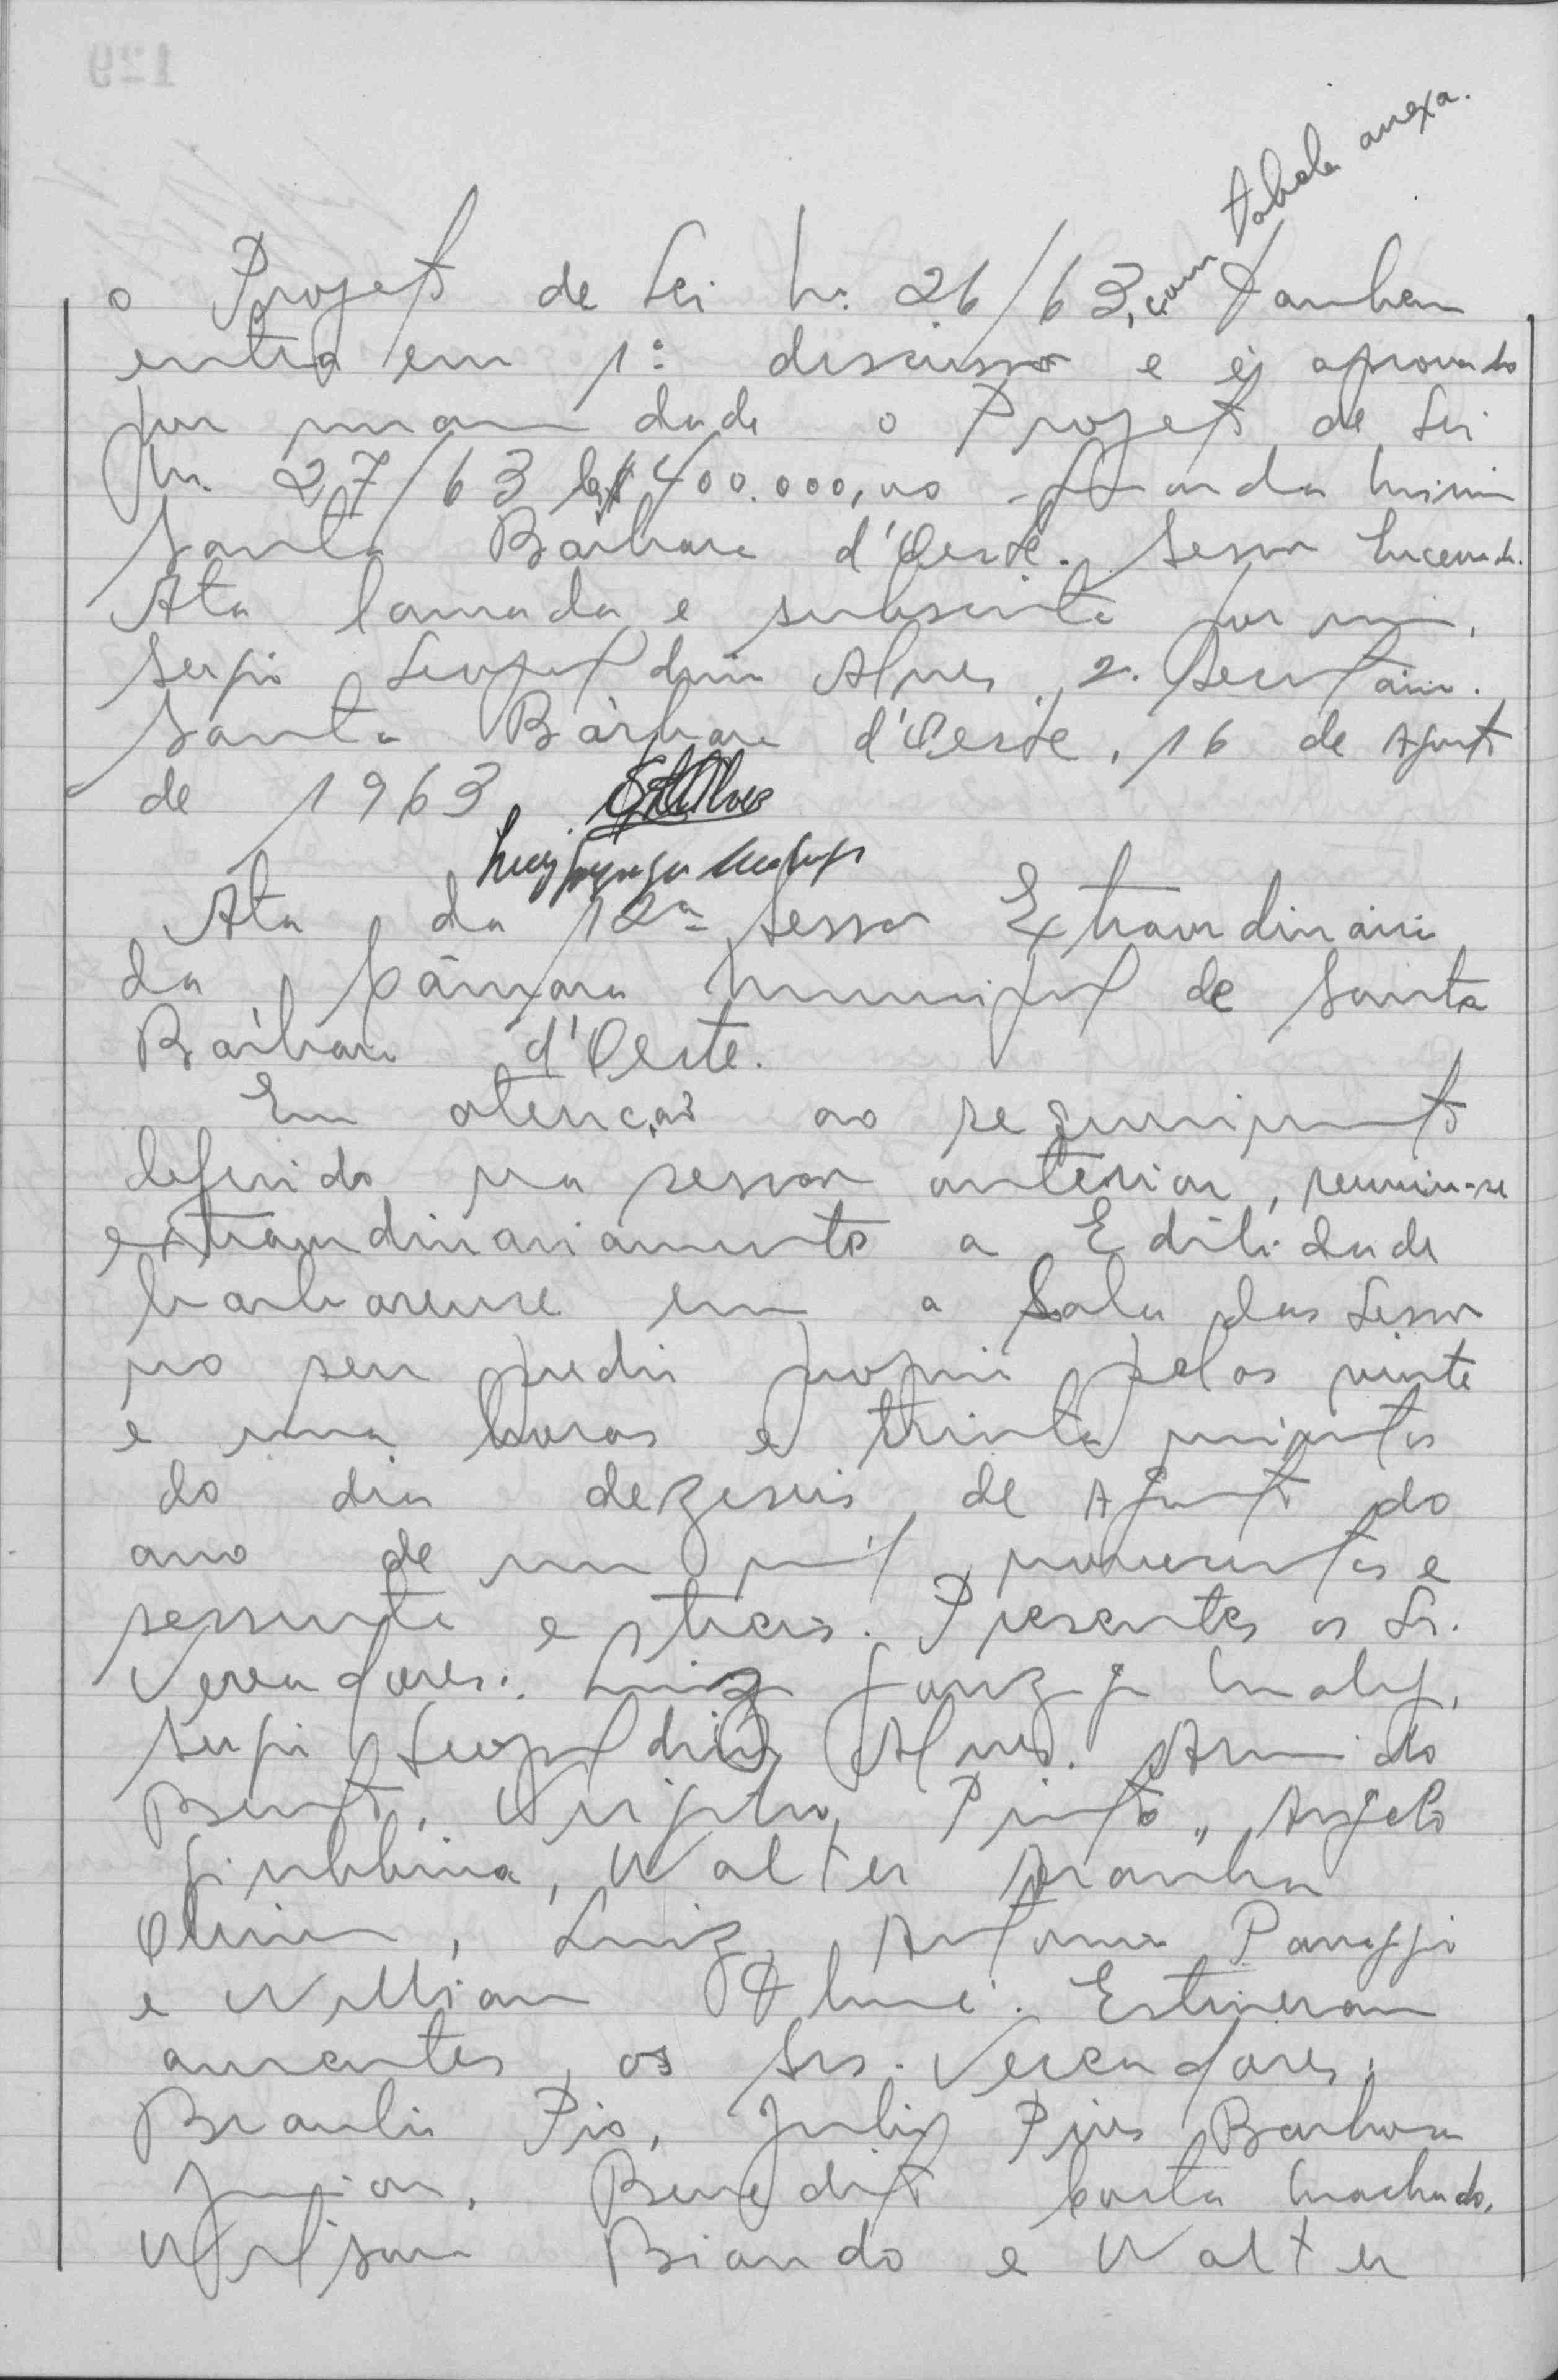 o Projeto de Lei nr. 26/63, com tabela anexa. Tambem
entra em 1ª discussão e é aprovado
por unanimidade o Projeto de Lei
nr. 27/63 Cr$ 400.000,00 - Guarda Mirim
Santa Bárbara d'Oeste. Sessão encerrada.
Ata lavrada e subscrita por mim,
Sergio Leopoldino Alves, 2º Secretário.
Santa Bárbara d'Oeste, 16 de Agosto
de 1963
Ata da 12ª Sessão Extraordinária
da Câmara Municipal de Santa
Bárbara d'Oeste.
Em atenção ao requerimento
deferido na sessão anterior, reuniu-se
extraordinariamente a Edilidade
barbarense em a Sala das Sessões
no seu predio proprio pelas vinte
e uma horas e trinta minutos
do dia dezeseis de Agosto do
ano de um mil novecentos e
sessenta e treis. Presentes os Sr.
Vereadores: Luiz Gonzaga
Sergio Leopoldino Alves, Armindo
Bento, Pinto, Angelo
Giubbina, Walter Aranha
Oliveira, Luiz Antonio Panaggio
e Willian. Estiveram
ausentes os Srs. Vereadores:
Braulio Pio, Julio Pires Barbosa
Junior, Benedito Costa Machado,
Wilson e Walter